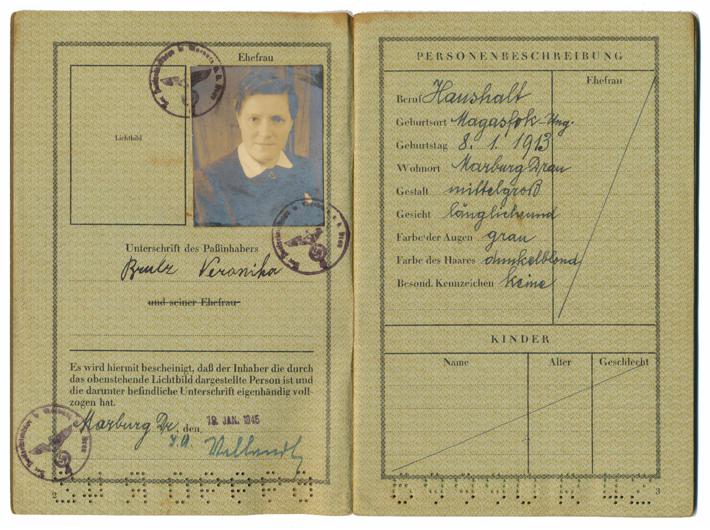 Ehefrau
Lichtbild
Unterschrift des Paßinhabers
Brulz Veronika
und seiner Ehefrau
Es wird hiermit bescheinigt, daß der Inhaber die durch
das obenstehende Lichtbild dargestellte Person ist und
die darunter befindliche Unterschrift eigenhändig voll-
zogen hat.
Marburg Dr., den 19. JAN. 1945
I.A.
2
PERSONENBESCHREIBUNG
Ehefrau
Beruf Haushalt
Geburtsort Magasfok Ung.
Geburtstag 8. 1. 1913
Wohnort Marburg Drau
Gestalt mittelgroß
Gesicht länglichrund
Farbe der Augen grau
Farbe des Haares dunkelblond
Besond. Kennzeichen keine
KINDER
Name Alter Geschlecht
3